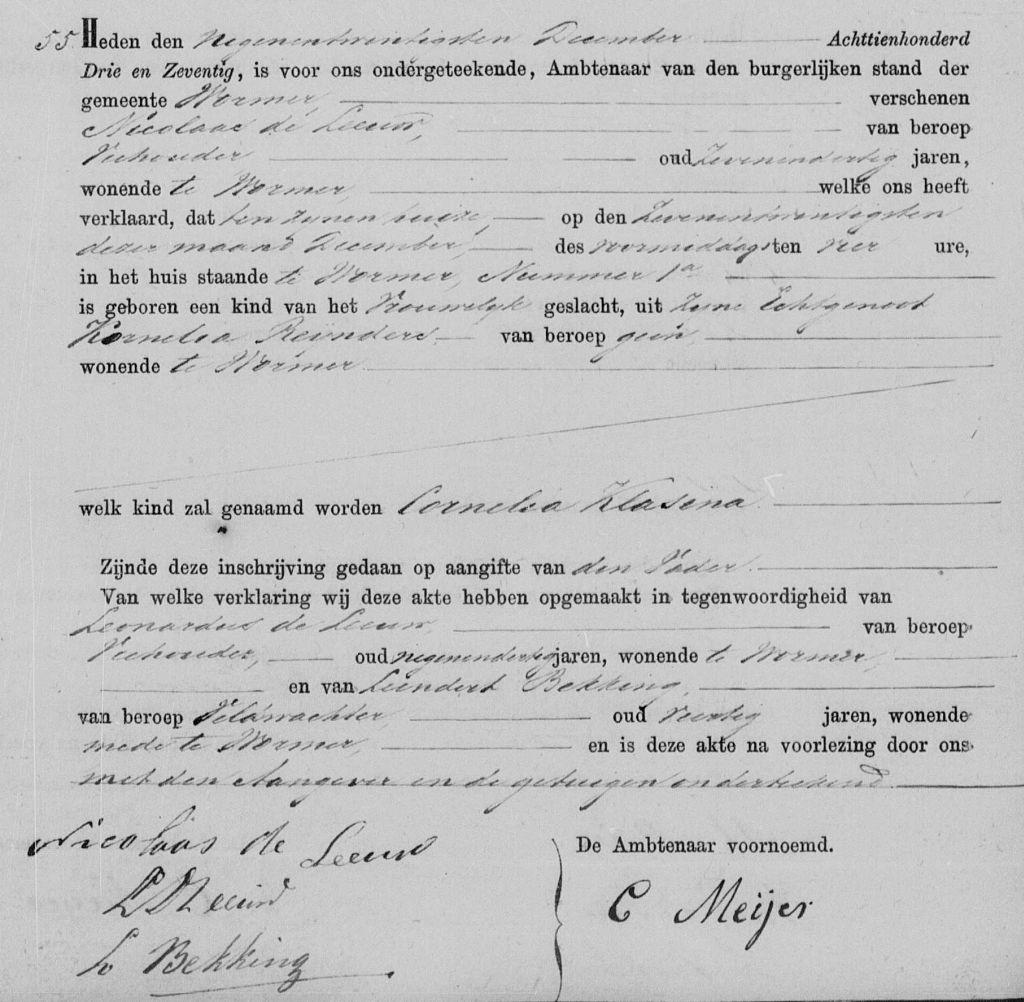 55 Heden den Negenentwintigsten December Achttienhonderd
Drie en Zeventig, is voor ons ondergeteekende, Ambtenaar van den burgerlijken stand der
gemeente Wormer, verschenen
Nicolaas de Leeuw, van beroep
Veehouder oud Zevenendertig jaren,
wonende te Wormer, welke ons heeft
verklaard, dat ten zijnen huize, op den Zevenentwintigsten
dezer maand December, des voormiddags ten vier ure,
in het huis staande te Wormer, Nummer 1a
is geboren een kind van het Vrouwelijk geslacht, uit zijne Echtgenoot
Kornelia Reinders van beroep geen,
wonende te Wormer
welk kind zal genaamd worden Cornelia Klasina
Zijnde deze inschrijving gedaan op aangifte van den Vader.
Van welke verklaring wij deze akte hebben opgemaakt in tegenwoordigheid van
Leonardus de Leeuw, van beroep
Veehouder, oud negenendertig jaren, wonende te Wormer,
en van Leendert Bekking,
van beroep Veldwachter, oud Veertig jaren, wonende
mede te Wormer, en is deze akte na voorlezing door ons
met den Aangever en de getuigen onderteekend.
Nicolaas de Leeuw
De Ambtenaar voornoemd.
L D Leeuw
C Meijer
L Bekking.